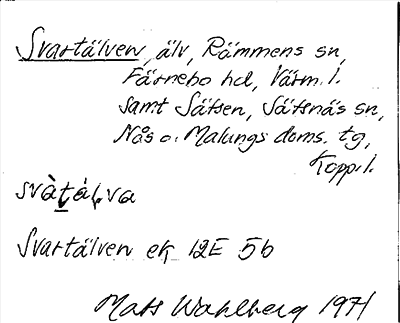 Svartälven, älv, Rämmens sn,
Färnebo hd, Värm. l.
samt Säfsen, Säfsnäs sn,
Nås o. Malungs doms. tg,
Kopp. l.
svàt̲álva
Svartälven ek 12E 5b
Mats Wahlberg 1971